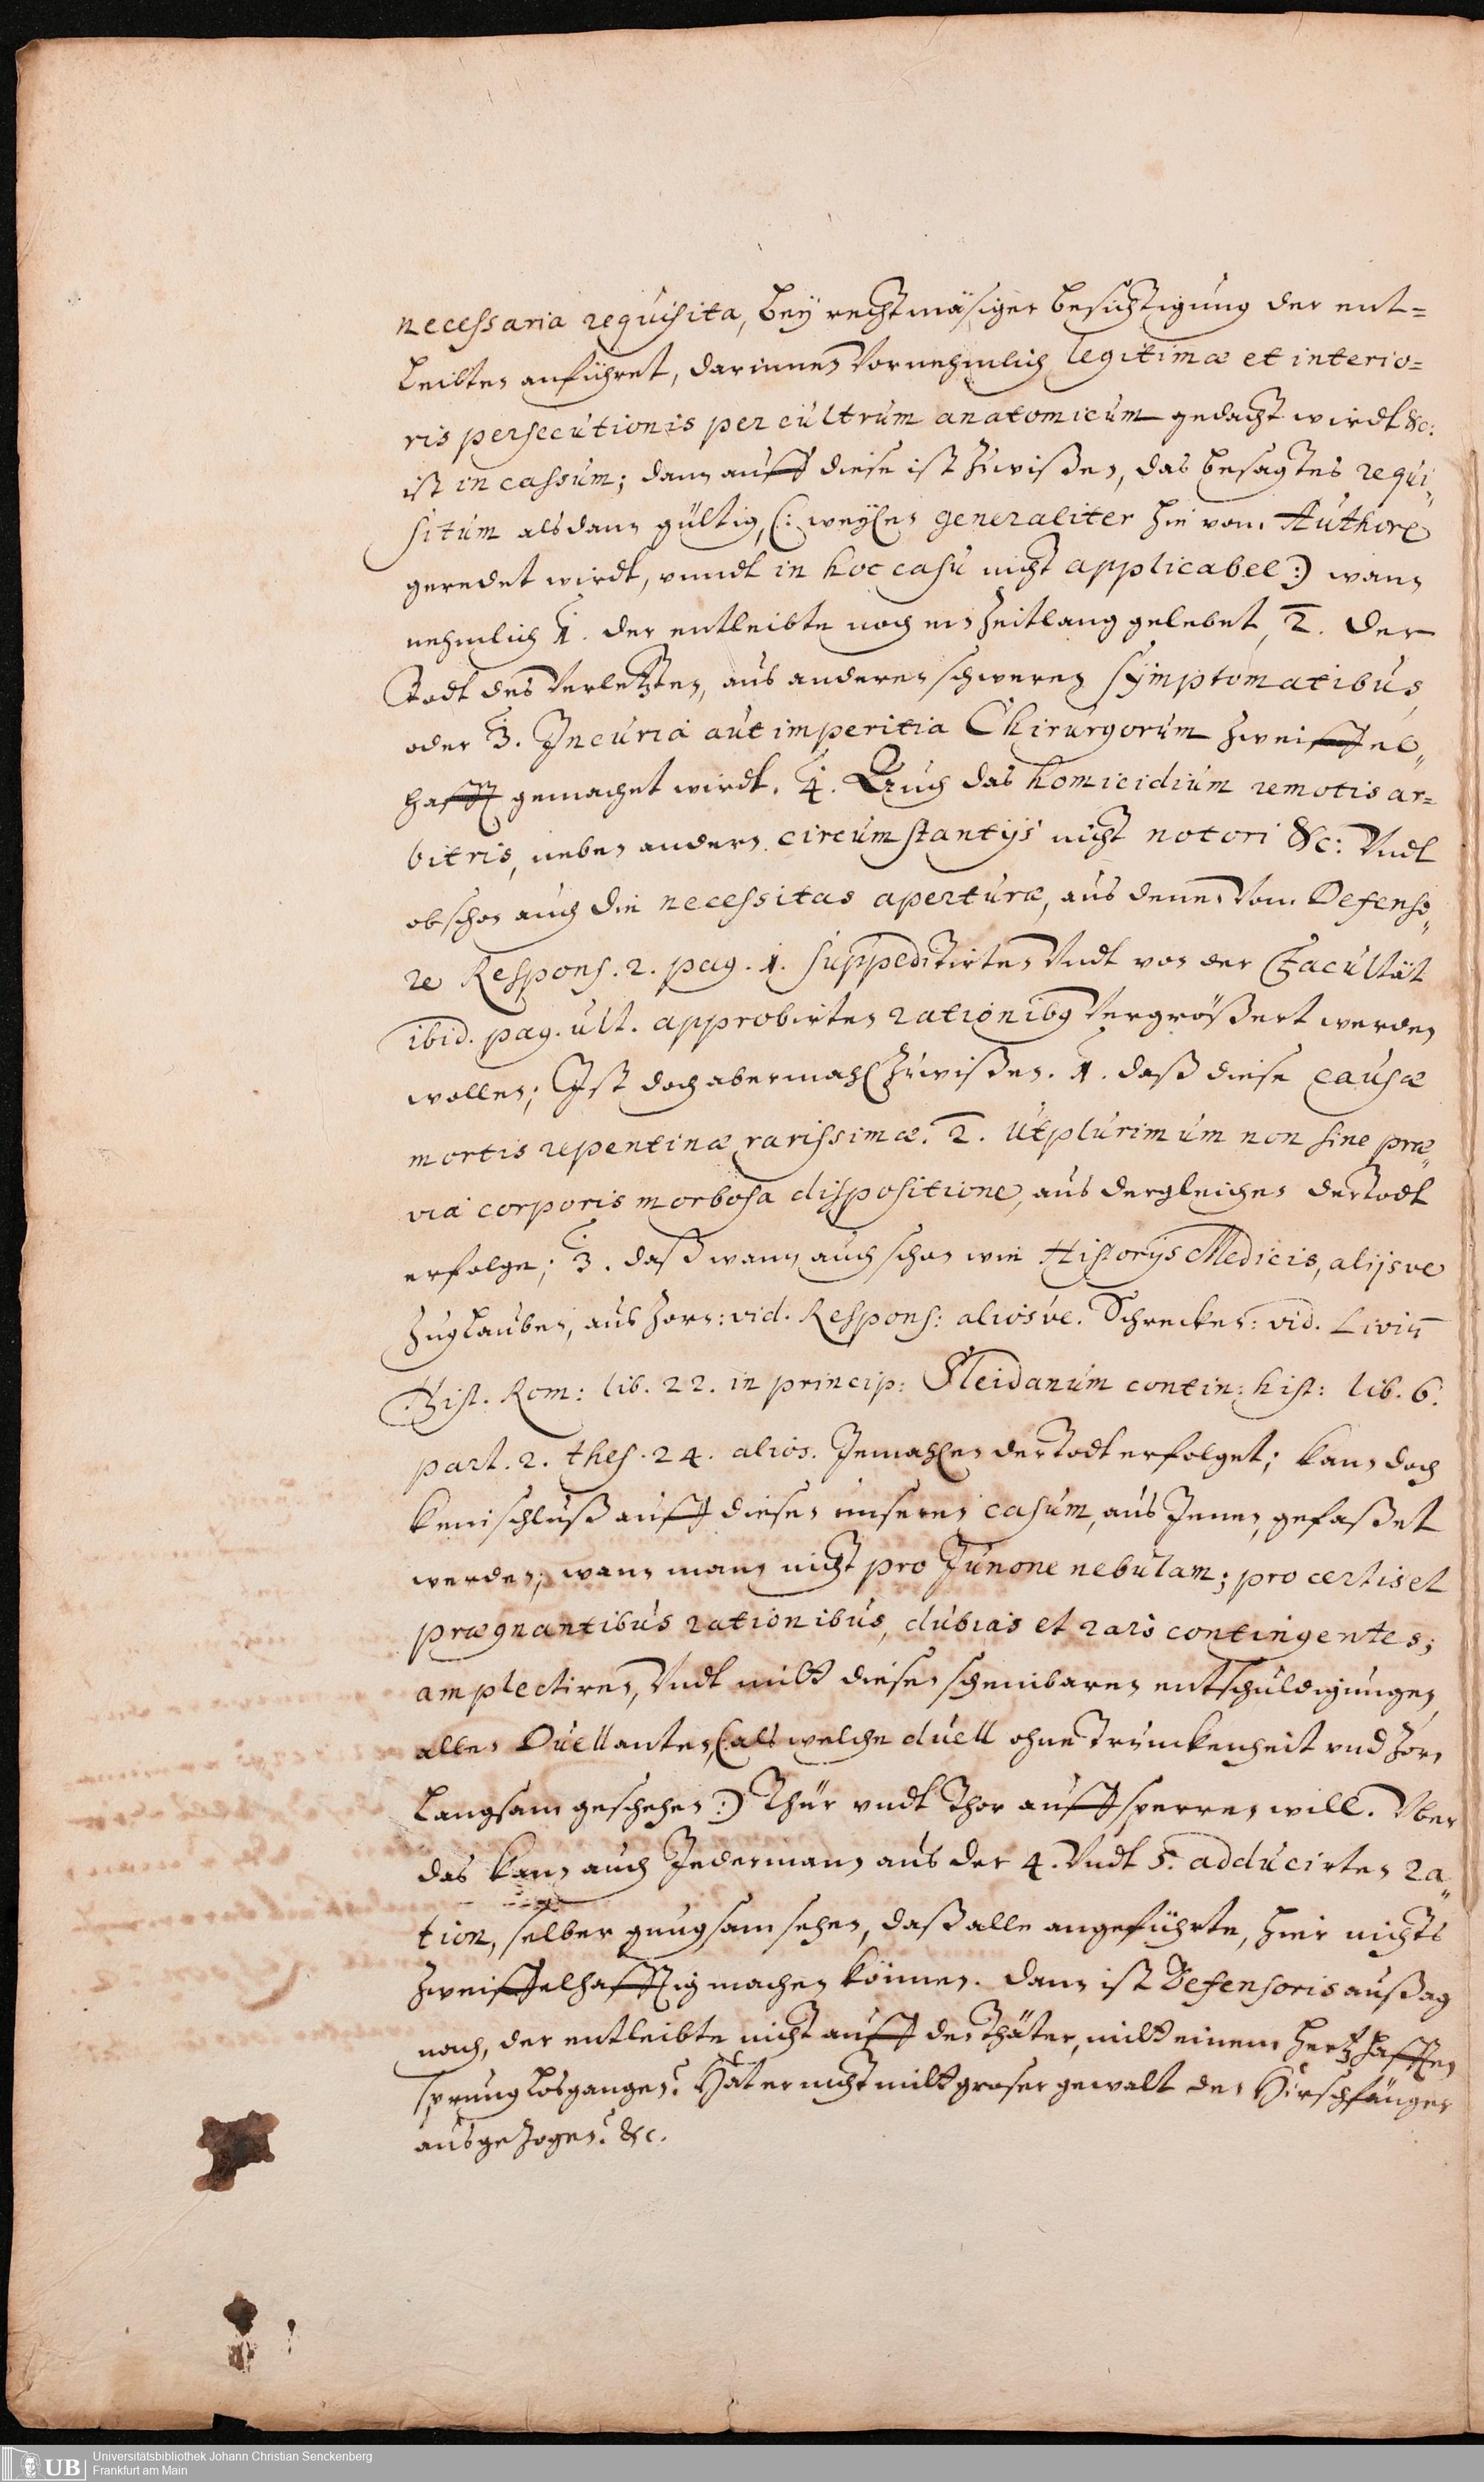 necessaria requisita, bey rechtmäsiger besichtigung der ent=
leibten anführet, darinnen Vornehmlich legitimæ et interio=
ris persecutionis per cultrum anatomicum gedacht wirdt &c:
ist in cassum; dann auff diese ist zuwißen, das besagtes requi„
situm alsdann gültig, (: weylen generaliter hie vom Authore
geredet wirdt, vnndt in hoc casu nicht applicabel :) wann
nehmlich 1. der entleibte noch ein Zeitlang gelebet, 2. der
Todt des Verletzten, aus anderen schweren symptomatibus,
oder 3. Incuria aut imperitia Chirurgorum zweiffel„
hafft gemachet wirdt. 4. Auch das homicidium remotis ar=
bitris, neben andern circumstantijs nicht notori &c: Vndt
obschon auch die necessitas aperturæ, aus denen Vom Defenso„
re Respons. 2. pag. 1. suppeditirten Vndt von der Facultät
ibid. pag. ult. approbirten rationibq Vergrößert werden
wollen; Ist doch abermahl zuwißen. 1. daß diese causæ
mortis repentinæ rarissimæ. 2. Utplurimum non sine præ„
via corporis morbosa dispositione, aus dergleichen der Todt
erfolge; 3. daß wann auch schon wie Historijs Medicis, alijsve
zuglauben, aus Zorn: vid. Respons: aliosve. Schrecken: vid. Liviū
Hist. Rom: lib. 22. in princip: Sleidanum contin: hist: lib. 6.
part. 2. thes. 24. alios. Jemahlen der Todt erfolget; kann doch
kein schluß auff diesen unseren casum, aus Jenen, gefaßet
werden; wann mann nicht pro Junone nebulam; pro certis et
prægnantibus rationibus, dubias et raro contingentes;
amplectiren, Vndt mitt diesen scheinbaren entschuldigungen
allen Duellanten, (: als welche duell ohne Trunckenheit vnd Zorn
langsam geschehen :) Thür vndt Thor auffsperren will. Vber
das kann auch Jedermann aus der 4. Vndt 5. adducirten ra„
tion, selber gnugsam sehen, daß alle angeführte, hier nichts
zweiffelhafftig machen können. Dann ist Defensoris außag
nach, der entleibte nicht auff den Thäter, mitt einem hertzhafften
sprung losgangen? Hat er nicht mitt groser gewalt den Hirschfänger
ausgezogen? &c.
Universitätsbibliothek Johann Christian Senckenberg
Frankfurt am Main
UB